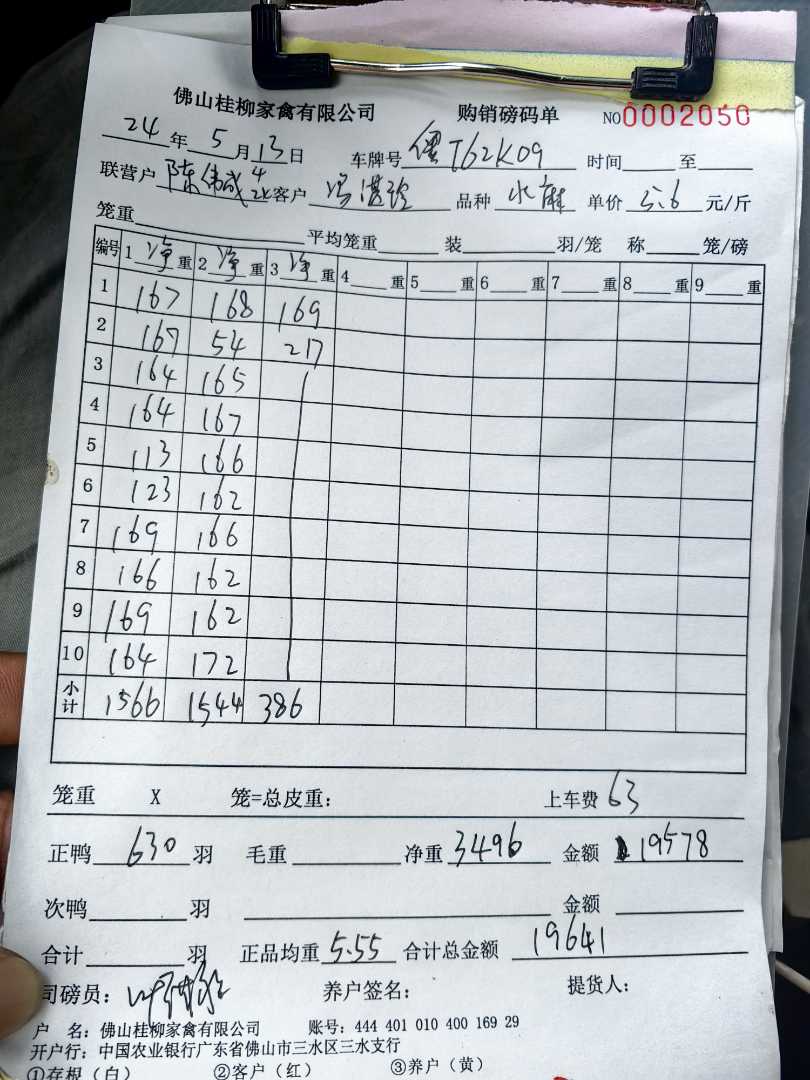 佛山桂柳家禽有限公司 购销磅码单 NO0002050
24年5月13日 车牌号 T62K09 时间 至
联营户 陈伟成 客户 冯湛玲 品种 水麻 单价 5.6 元/斤
笼重 平均笼重 装 羽/笼 称 笼/磅
编号 1 净 重 2 净 重 3 净 重 4 重 5 重 6 重 7 重 8 重 9 重
1 167 168 169
2 167 54 217
3 164 165
4 164 167
5 113 166
6 123 162
7 169 166
8 166 162
9 169 162
10 164 172
小计 1566 1544 386
笼重 X 笼=总皮重： 上车费 63
正鸭 630 羽 毛重 净重 3496 金额 19578
次鸭 羽 金额
合计 羽 正品均重 5.55 合计总金额 19641
司磅员： 养户签名： 提货人：
户 名：佛山桂柳家禽有限公司 账号：444 401 010 400 169 29
开户行：中国农业银行广东省佛山市三水区三水支行
①存根（白） ②客户（红） ③养户（黄）